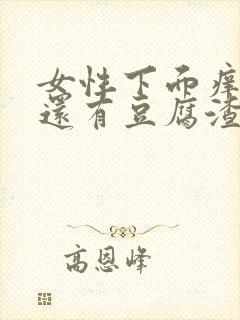 女性下面痒
還有豆腐渣
高恩峰